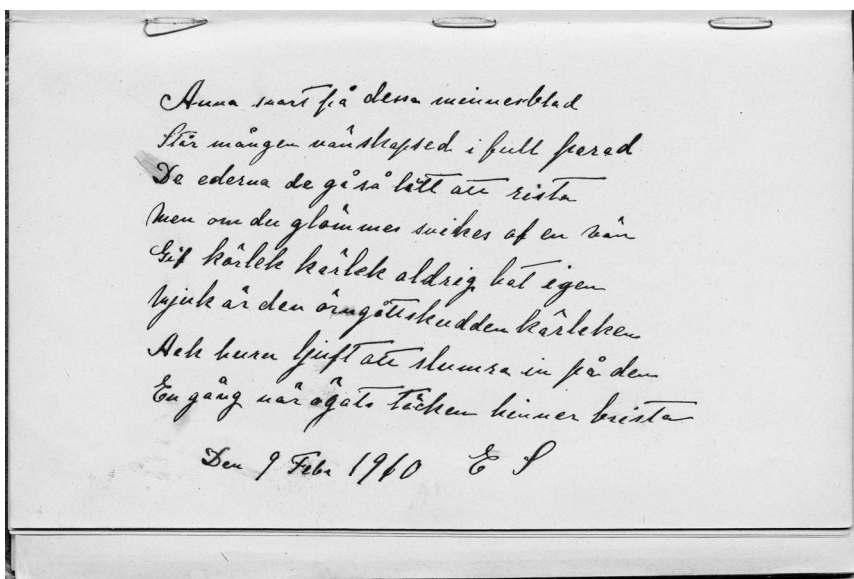 Anna snart på dessa minnesblad
Står mången vänskapsed i full parad
De ederna de gå så lätt att rista
Men om du glömmes svikes af en vän
Gif kärlek kärlek aldrig hat igen
Mjuk är den örngottskudden kärleken
Ack huru ljuft att slumra in på den
En gång när ögats hinner brista
Den 9 Febr 1910 E S